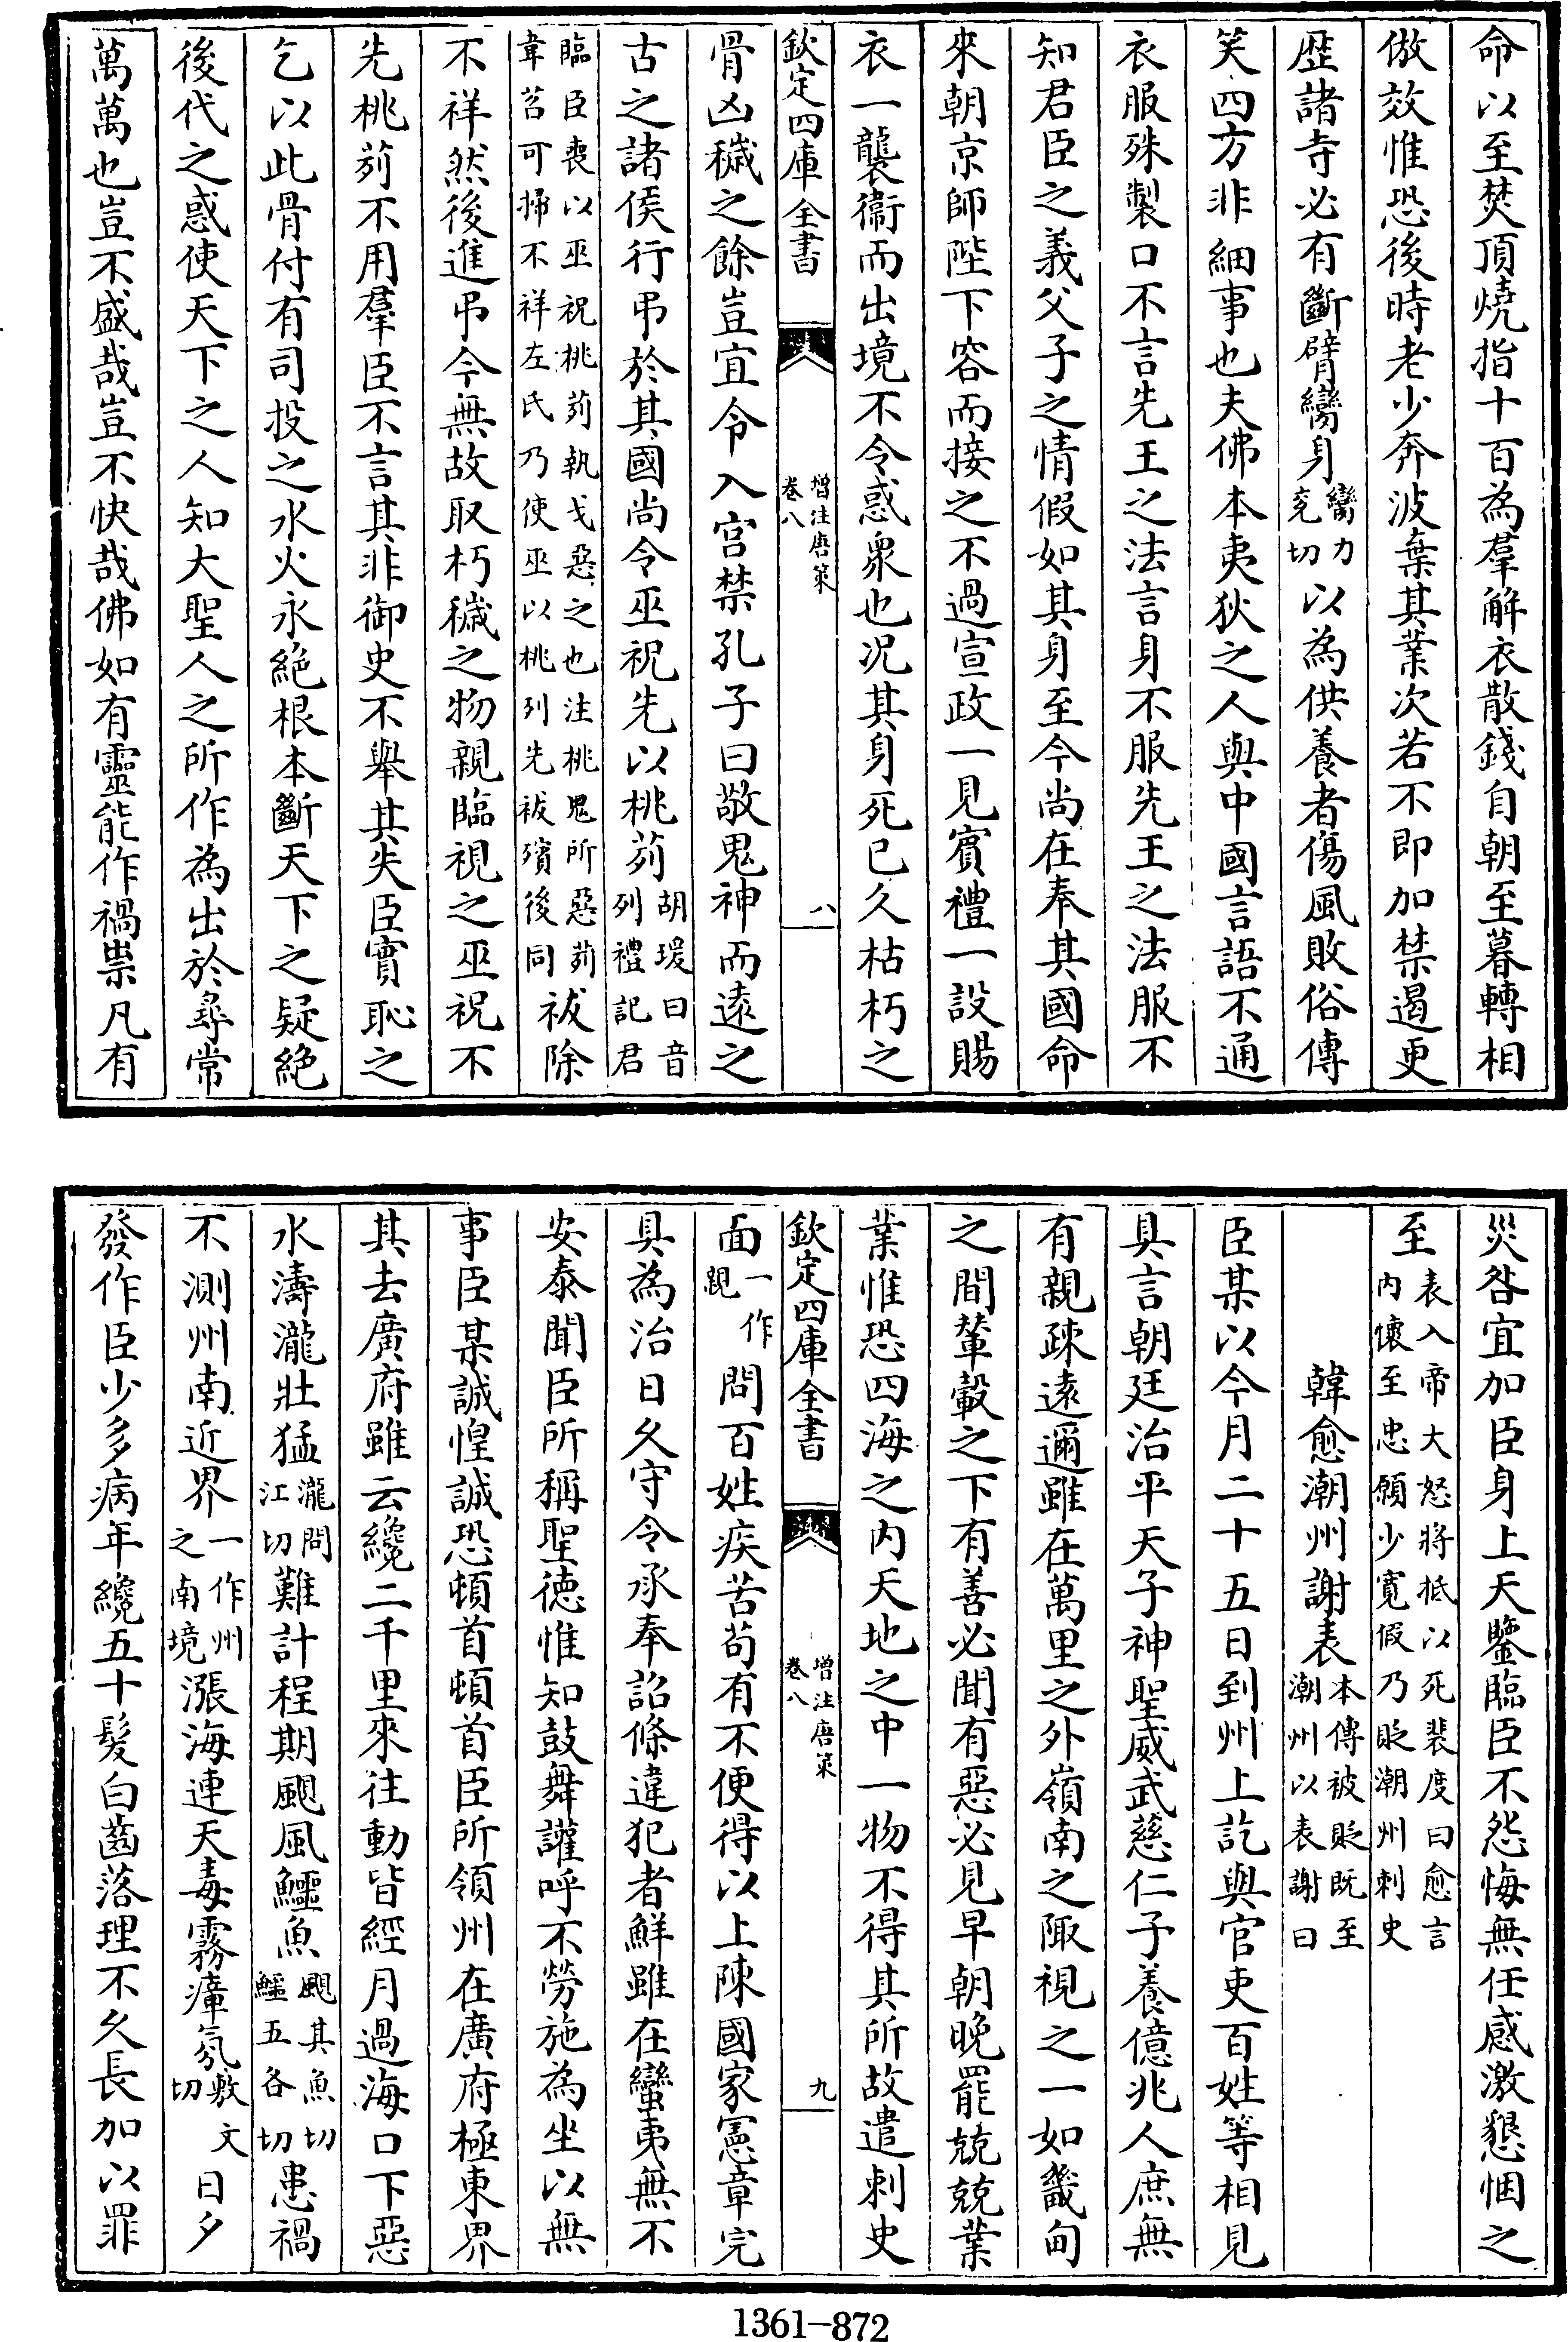 命以至焚頂燒指十百為羣解衣散錢自朝至暮轉相
倣效惟恐後時老少奔波棄其業次若不即加禁遏更
歴諸寺必有斷臂臠身臠力兗切以為供養者傷風敗俗傳
笑四方非細事也夫佛本夷狄之人與中國言語不通
衣服殊製口不言先王之法言身不服先王之法服不
知君臣之義父子之情假如其身至今尚在奉其國命
來朝京師陛下容而接之不過宣政一見賓禮一設賜
衣一襲衞而出境不令惑衆也况其身死已久枯朽之
欽定四庫全書 增注唐策卷八 八
骨凶穢之餘豈宜令入宫禁孔子曰敬鬼神而逺之
古之諸侯行弔於其國尚令巫祝先以桃茢胡瑗曰音列禮記君
臨臣喪以巫祝桃茢執戈惡之也注桃鬼所惡茢萑苕可掃不祥左氏乃使巫以桃列先祓殯後同祓除
不祥然後進弔今無故取朽穢之物親臨視之巫祝不
先桃茢不用羣臣不言其非御史不舉其失臣實恥之
乞以此骨付有司投之水火永絶根本斷天下之疑絶
後代之惑使天下之人知大聖人之所作為出於尋常
萬萬也豈不盛哉豈不快哉佛如有靈能作禍祟凡有
災咎宜加臣身上天鑒臨臣不怨悔無任感激懇悃之
至表入帝大怒將抵以死裴度曰愈言内懐至忠願少寛假乃貶潮州刺史
韓愈潮州謝表本傳被貶既至潮州以表謝曰
臣某以今月二十五日到州上訖與官吏百姓等相見
具言朝廷治平天子神聖威武慈仁子養億兆人庶無
有親疎逺邇雖在萬里之外嶺南之陬視之一如畿甸
之間輦轂之下有善必聞有惡必見早朝晚罷兢兢業
業惟恐四海之内天地之中一物不得其所故遣刺史
欽定四庫全書 增注唐策卷八 九
面一作親問百姓疾苦苟有不便得以上陳國家憲章完
具為治日久守令承奉詔條違犯者鮮雖在蠻夷無不
安泰聞臣所稱聖德惟知鼓舞讙呼不勞施為坐以無
事臣某誠惶誠恐頓首頓首臣所領州在廣府極東界
其去廣府雖云纔二千里來往動皆經月過海口下惡
水濤瀧壯猛瀧閭江切難計程期颶風鱷魚颶其魚切鱷五各切患禍
不測州南近界一作州之南境漲海連天毒霧瘴氛敷文切日夕
發作臣少多病年纔五十髮白齒落理不久長加以罪
1361-872